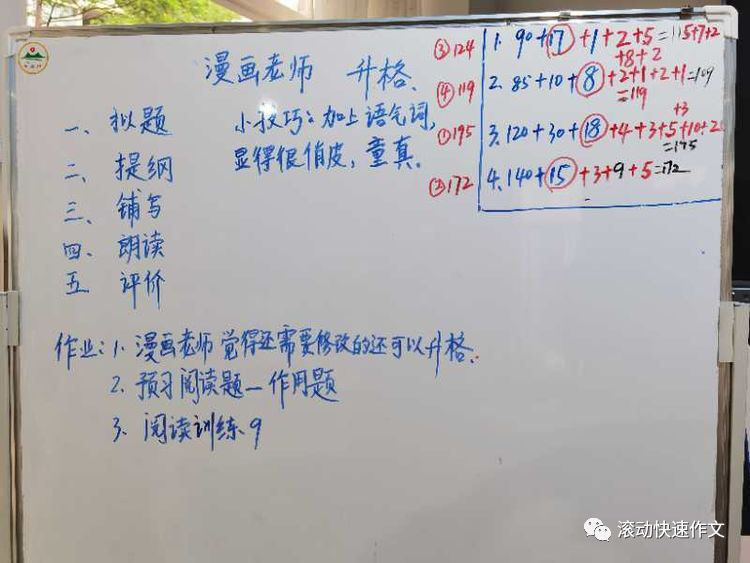 漫画老师 升格.
一、拟题
小技巧:加上语气词,
显得很俏皮,童真.
二、提纲
三、铺写
四、朗读
五 评价
③124
1. 90+17+1+2+5=115+7+2
+8+2
④119
2. 85+10+8+2+1+2+1=109
=119
①195
+3
3. 120+30+18+4+3+5+10+2
=195
②172
4. 140+15+3+9+5=172
作业:1. 漫画老师 觉得还需要修改的还可以升格.
2. 预习阅读题—作用题
3、阅读训练.9
滚动快速作文